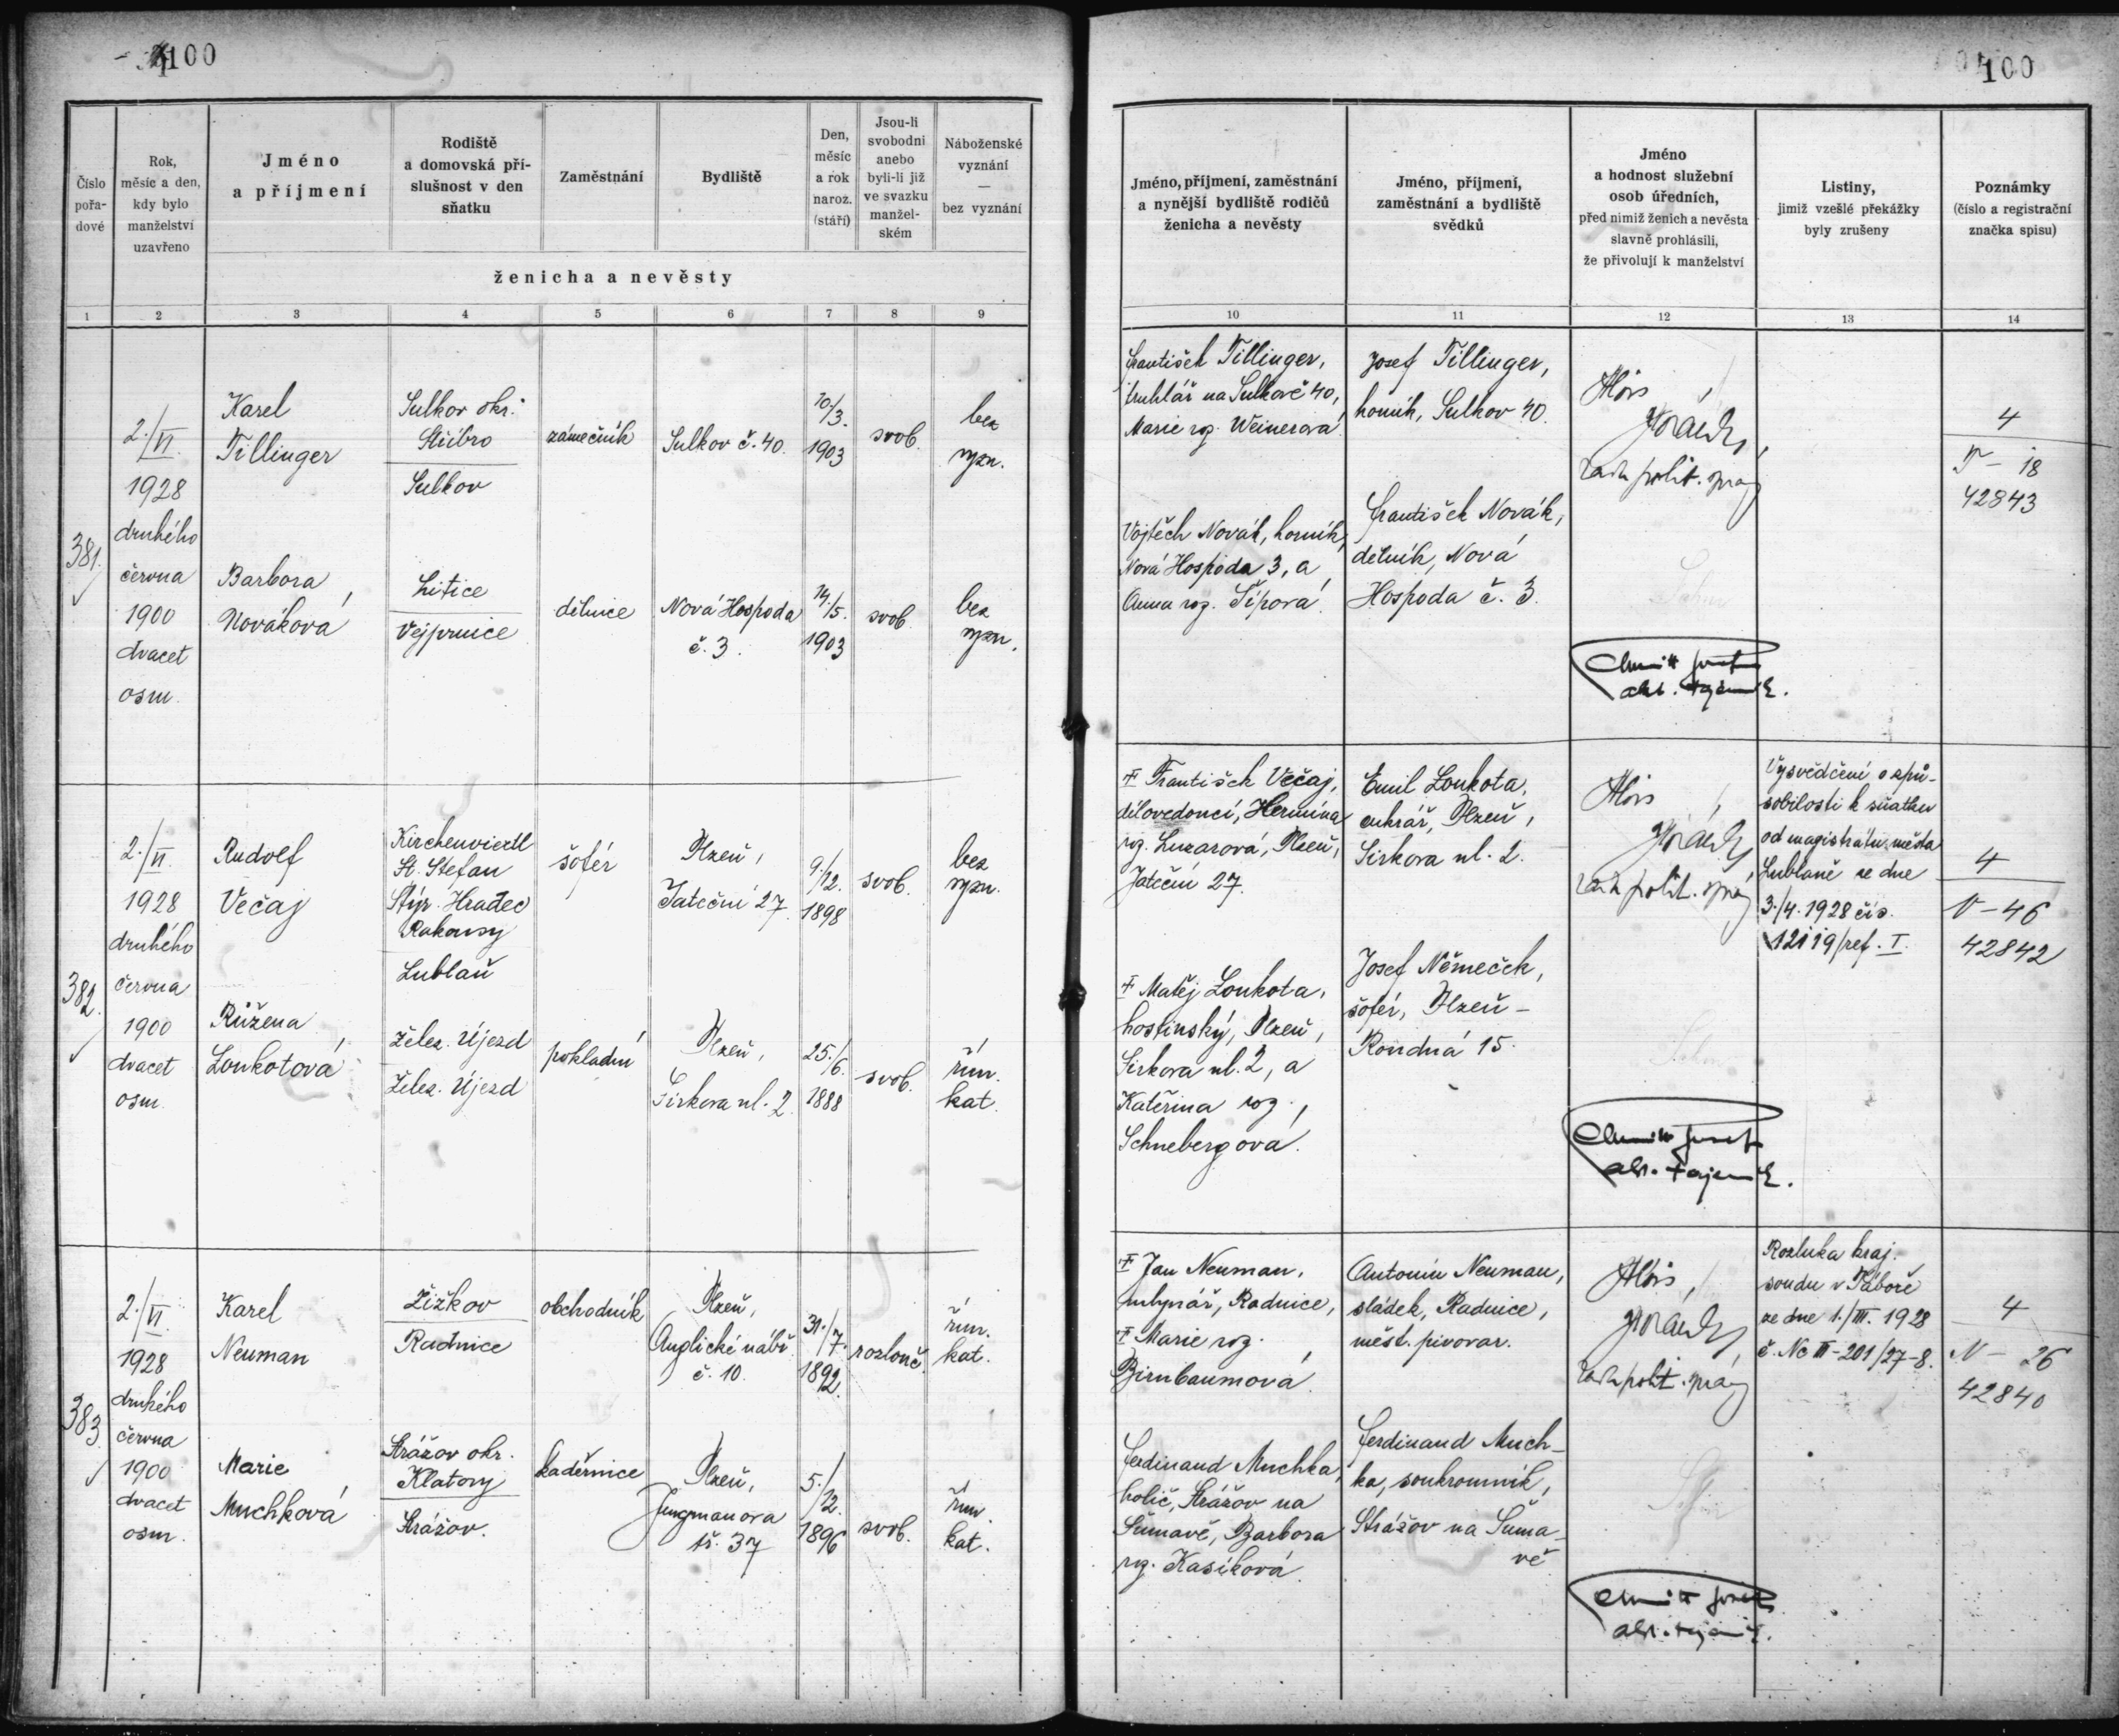 100
100
Číslo
pořa-
dové
Rok,
měsíc a den,
kdy bylo
manželství
uzavřeno
Jméno
a příjmení
Rodiště
a domovská pří-
slušnost v den
sňatku
Zaměstnání
Bydliště
Den,
měsíc
a rok
naroz.
(stáří)
Jsou-li
svobodni
anebo
byli-li již
ve svazku
manžel-
ském
Náboženské
vyznání
—
bez vyznání
ženicha a nevěsty
Jméno, příjmení, zaměstnání
a nynější bydliště rodičů
ženicha a nevěsty
Jméno, příjmení,
zaměstnání a bydliště
svědků
Jméno
a hodnost služební
osob úředních,
před nimiž ženich a nevěsta
slavně prohlásili,
že přivolují k manželství
Listiny,
jimiž vzešlé překážky
byly zrušeny
Poznámky
(číslo a registrační
značka spisu)
1 2 3 4 5 6 7 8 9
10 11 12 13 14
381.
2./VI.
1928
druhého
června
1900
dvacet
osm.
Karel
Tillinger
Sulkov okr.
Stříbro
Sulkov
zámečník
Sulkov č. 40.
10/3.
1903
svob.
bez
vyzn.
František Tillinger,
truhlář na Sulkově 40,
Marie roz. Weinerová.
Josef Tillinger,
horník, Sulkov 40.
Alois
rada polit. správy
4
T - 18
42843
Barbora
Nováková
Litice
Vejprnice
dělnice
Nová Hospoda
č. 3.
14./5.
1903
svob.
bez
vyzn.
Vojtěch Novák, horník,
Nová Hospoda 3, a
Anna roz. Šípová.
František Novák,
dělník, Nová
Hospoda č. 3.
382.
2./VI.
1928
druhého
června
1900
dvacet
osm.
Rudolf
Večaj
Kirchenviertl
St. Stefan
Štýr. Hradec
Rakousy
Lublaň
šofér
Plzeň,
Jateční 27.
9./12.
1898
svob.
bez
vyzn.
‡ František Večaj,
dílovedoucí, Hermína
roz. Luzarová, Plzeň,
Jateční 27.
Emil Loukota,
cukrář, Plzeň,
Sirkova ul. 2.
Alois
rada polit. správy
Vysvědčení o způ-
sobilosti k sňatku
od magistrátu města
Lublaně ze dne
3./4. 1928 čís.
12119/ref. I.
4
V - 46
42842
Růžena
Loukotová
Želez. Újezd
Želez. Újezd
pokladní
Plzeň,
Sirkova ul. 2.
25./6.
1888
svob.
řím.
kat.
‡ Matěj Loukota,
hostinský, Plzeň,
Sirkova ul. 2, a
Kateřina roz.
Schnebergová.
Josef Němeček,
šofér, Plzeň -
Roudná 15.
383.
2./VI.
1928
druhého
června
1900
dvacet
osm.
Karel
Neuman
Žižkov
Radnice
obchodník
Plzeň,
Anglické nábř.
č. 10.
31./7.
1892.
rozlouč.
řím.
kat.
‡ Jan Neuman,
mlynář, Radnice,
‡ Marie roz.
Birnbaumová.
Antonín Neuman,
sládek, Radnice,
měst. pivovar.
Alois
rada polit. správy
Rozluka kraj.
soudu v Táboře
ze dne 1./III. 1928
č. Nc III-201/27-8.
4
N - 26
42840
Marie
Muchková
Strážov okr.
Klatovy
Strážov.
kadeřnice
Plzeň,
Jungmanova
tř. 37
5./12.
1896
svob.
řím.
kat.
Ferdinand Muchka,
holič, Strážov na
Šumavě, Barbora
roz. Kasíková.
Ferdinand Much-
ka, soukromník,
Strážov na Šuma-
vě